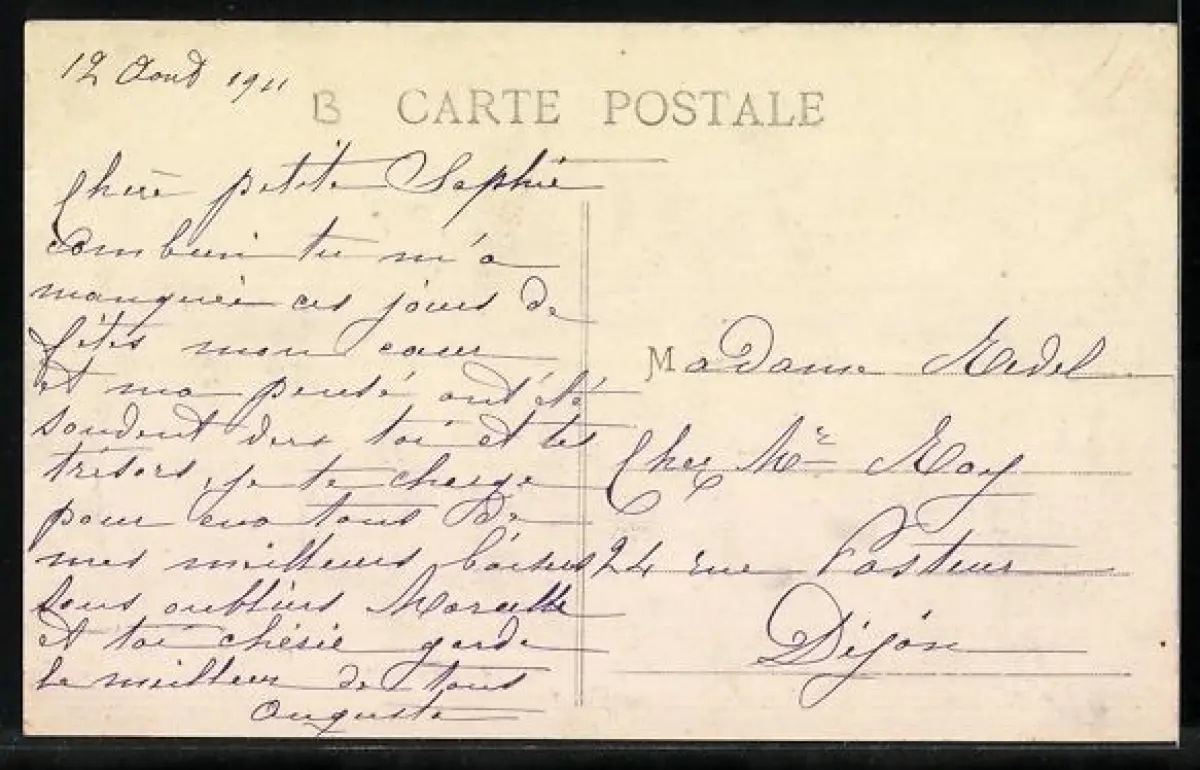 12 Aout 1911
B CARTE POSTALE
Chère petite Sophie
combien tu m'a
manquée ces jours de
fêtes mon coeur
et ma pensé ont été
soudent vers toi et tes
trésors, je te charge
pour eux tous de
mes meilleurs baisers
sans oubliers Marcelle
et toi chérie garde
le meilleur de tous
Auguste
Madame Redel
Chez Mr Roy
24 rue Pasteur
Dijon